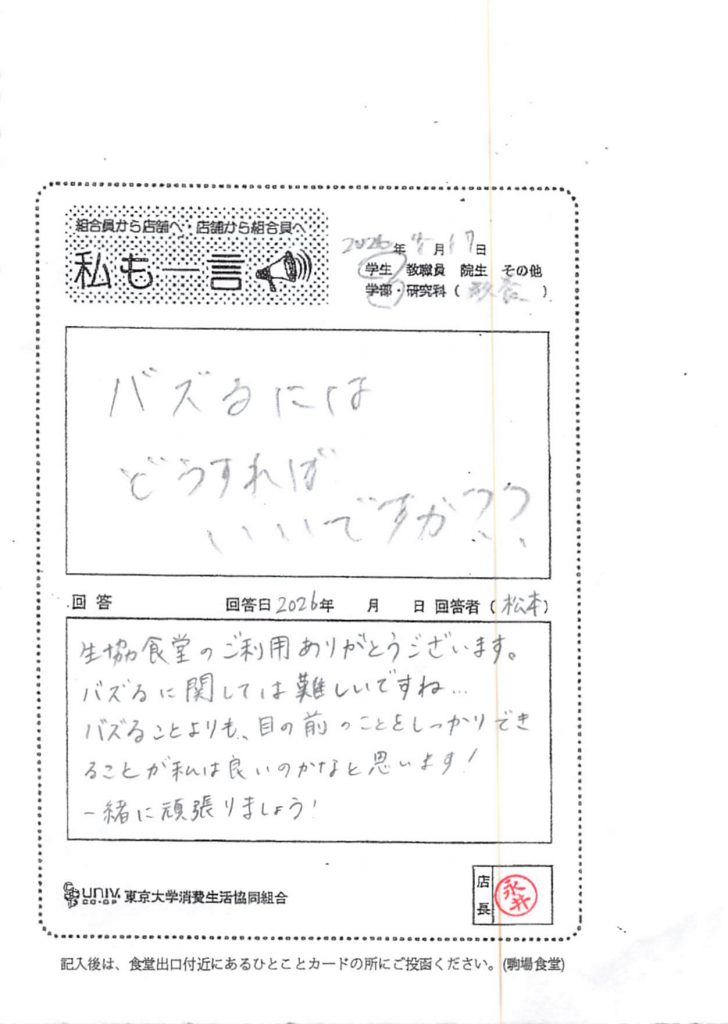 組合員から店舗へ・店舗から組合員へ
私も一言
2026年4月17日
学生 教職員 院生 その他
学部・研究科(教養)
バズるには
どうすれば
いいですか??
回答 回答日2026年 月 日 回答者(松本)
生協食堂のご利用ありがとうございます。
バズるに関しては難しいですね…
バズることよりも、目の前のことをしっかりでき
ることが私は良いのかなと思います!
一緒に頑張りましょう!
UNIV. CO-OP 東京大学消費生活協同組合
店長 永井
記入後は、食堂出口付近にあるひとことカードの所にご投函ください。(駒場食堂)